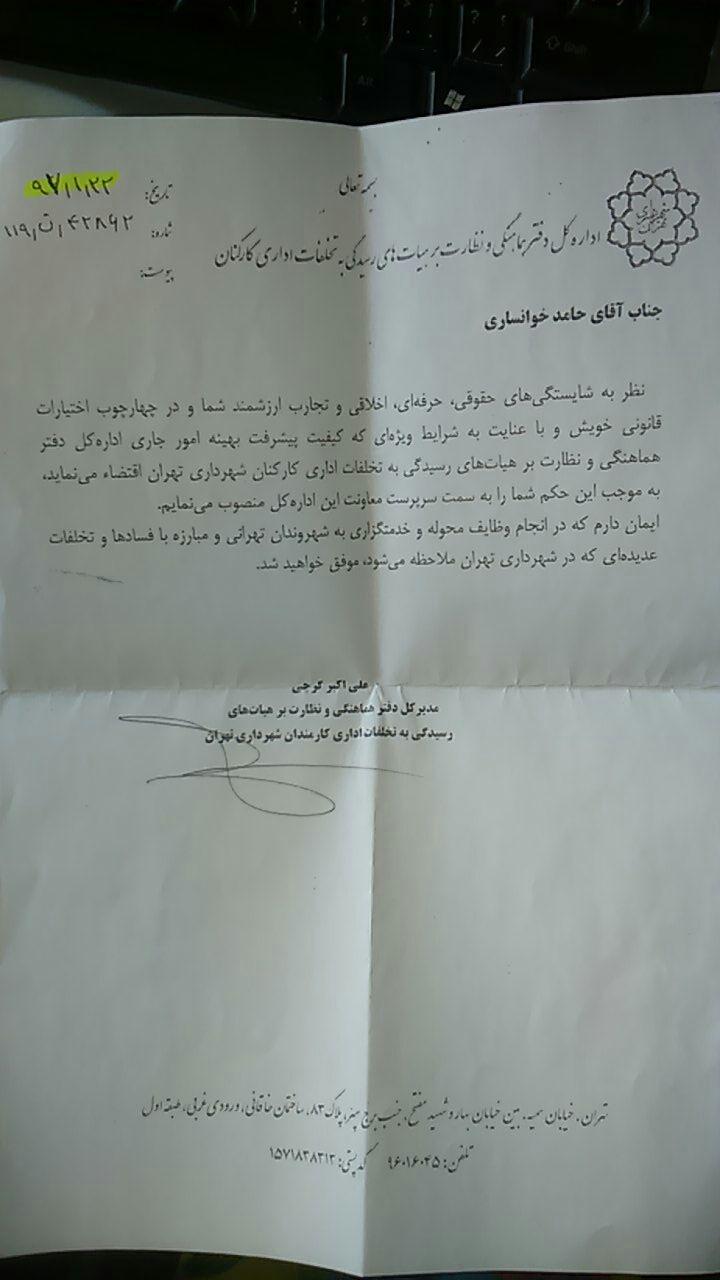 بسمه تعالی
اداره کل دفتر هماهنگی و نظارت بر هیات‌های رسیدگی به تخلفات اداری کارکنان
تاریخ: ۹۷,۱,۲۲
شماره: ۱۱۹,ت,۴۲۸۶۲
پیوست:
جناب آقای حامد خوانساری
نظر به شایستگی‌های حقوقی، حرفه‌ای، اخلاقی و تجارب ارزشمند شما و در چهارچوب اختیارات
قانونی خویش و با عنایت به شرایط ویژه‌ای که کیفیت پیشرفت بهینه امور جاری اداره‌کل دفتر
هماهنگی و نظارت بر هیات‌های رسیدگی به تخلفات اداری کارکنان شهرداری تهران اقتضاء می‌نماید،
به موجب این حکم شما را به سمت سرپرست معاونت این اداره‌کل منصوب می‌نمایم.
ایمان دارم که در انجام وظایف محوله و خدمتگزاری به شهروندان تهرانی و مبارزه با فسادها و تخلفات
عدیده‌ای که در شهرداری تهران ملاحظه می‌شود، موفق خواهید شد.
علی اکبر گرجی
مدیرکل دفتر هماهنگی و نظارت بر هیات‌های
رسیدگی به تخلفات اداری کارمندان شهرداری تهران
تهران، خیابان سمیه، بین خیابان بهار و شهید مفتح، جنب برج سپهر، پلاک ۸۳، ساختمان خاقانی، ورودی غربی، طبقه اول
تلفن: ۹۶۰۱۶۰۴۵ کدپستی: ۱۵۷۱۸۳۸۳۱۳